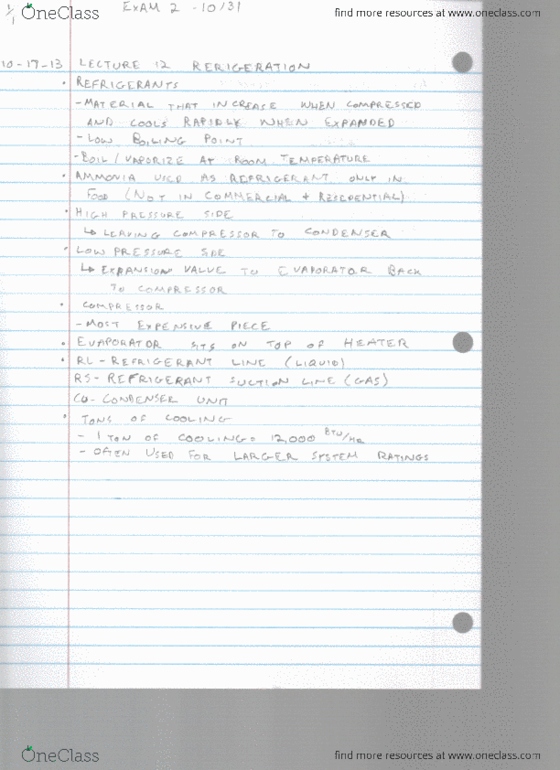 1/1
OneClass
EXAM 2 - 10/31
find more resources at oneclass.com
10-17-13 LECTURE 12 RERIGERATION
• REFRIGERANTS
- MATERIAL THAT INCREASE WHEN COMPRESSED
AND COOLS RAPIDLY WHEN EXPANDED
- LOW BOILING POINT
- BOIL / VAPORIZE AT ROOM TEMPERATURE
• AMMONIA USED AS REFRIGERANT ONLY IN
FOOD (NOT IN COMMERCIAL + RESIDENTIAL)
• HIGH PRESSURE SIDE
↳ LEAVING COMPRESSOR TO CONDENSER
• LOW PRESSURE SIDE
↳ EXPANSION VALVE TO EVAPORATOR BACK
TO COMPRESSOR
• COMPRESSOR
- MOST EXPENSIVE PIECE
• EVAPORATOR SITS ON TOP OF HEATER
• RL - REFRIGERANT LINE (LIQUID)
RS - REFRIGERANT SUCTION LINE (GAS)
CU - CONDENSER UNIT
• TONS OF COOLING
- 1 TON OF COOLING = 12,000 BTU/HR
- OFTEN USED FOR LARGER SYSTEM RATINGS
OneClass
find more resources at oneclass.com